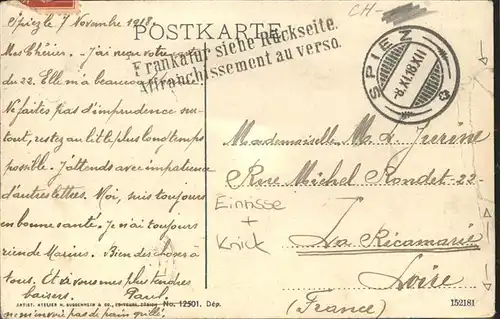 Spiez le 7 Novembre 1918.
POSTKARTE.
CH-
Frankatur siehe Rückseite.
Affranchissement au verso.
SPIEZ
8.XI.18.XII
Mes Chéries. J'ai reçu votre mot
du 22. Elle m'a beaucoup
N'faites pas d'imprudence sur-
tout, restez au lit le plus longtemps
possible. J'attends avec impatience
d'autres lettres. Moi, suis toujours
en bonne santé. Je n'ai toujours
rien de Marius. Bien des choses à
tous. Et à vous mes plus tendres
baisers. Paul.
m'envoient pas de pain grillé.
Mademoiselle M. L.
Rue Michel Rondet -22-
La Ricamarie
Loire
(France)
Einrisse
+
Knick
ARTIST. ATELIER H. GUGGENHEIM & CO., ZÜRICH No. 12501. Dép.
152181